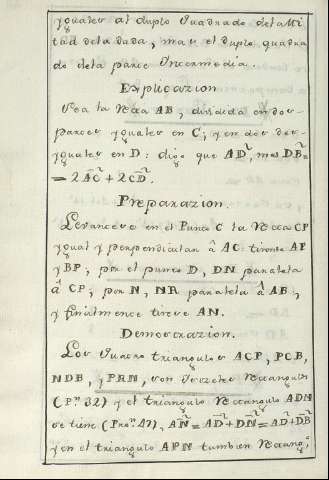 yguales al duplo quadrado de la Mi-
tad de la dada, mas el duplo quadra-
do de la parte Yntermedia.
Explicazion
Sea la Recta AB, dividida en dos
partes yguales en C; y en dos des-
yguales en D: digo que AD², mas DB²=
= 2AC² + 2CD².
Preparazion.
Levantese en el Punto C la Recta CP
ygual y perpendicular â AC tirense AP
y BP; por el punto D, DN paralela
â CP; por N, NR paralela â AB;
y finalmente tirese AN.
Demostrazion.
Los quatro triangulos ACP, PCB,
NDB, y PRN, son Ysozeles Rectangulos
(Pⁿ. 32) y el triangulo Rectangulo ADN
se tiene (Proⁿ. 47), AN² = AD² + DN² = AD² + DB²
y en el triangulo APN tambien Rectangº